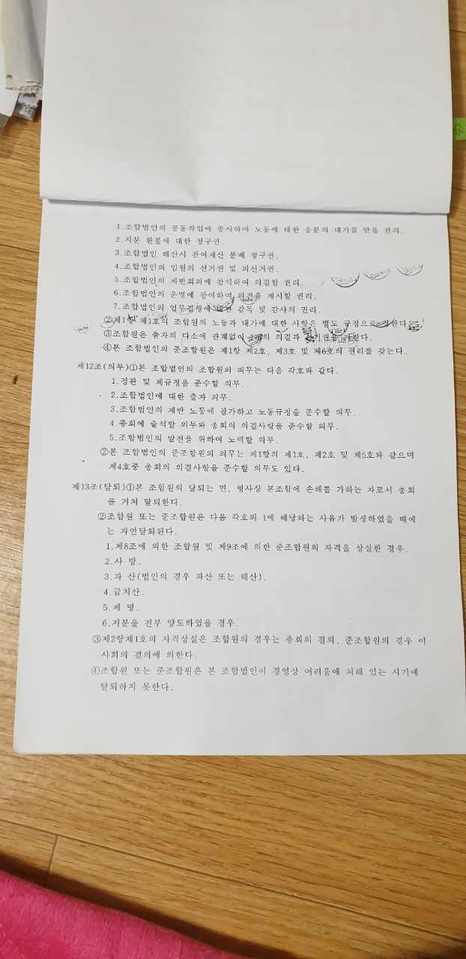 1.조합법인의 공동작업에 종사하여 노동에 대한 응분의 대가를 받을 권리.
2.지분 환불에 대한 청구권
3.조합법인 해산시 잔여재산 분배 청구권.
4.조합법인의 임원의 선거권 및 피선거권.
5.조합법인의 제반회의에 참석하여 의결할 권리.
6.조합법인의 운영에 참여하여 의견을 제시할 권리.
7.조합법인의 업무집행에 감독 및 감사의 권리.
②제1항 제1호의 조합원의 노동과 대가에 대한 사항은 별도 규정으로 한다.
③조합원은 출자의 다소에 관계없이 의결과
④본 조합법인의 준조합원은 제1항 제2호, 제3호 및 제6호의 권리를 갖는다.
제12조(의무)①본 조합법인의 조합원의 의무는 다음 각호와 같다.
1.정관 및 제규정을 준수할 의무
2.조합법인에 대한 출자 의무.
3.조합법인의 제반 노동에 참가하고 노동규정을 준수할 의무.
4.총회에 출석할 의무와 총회의 의결사항을 준수할 의무.
5.조합법인의 발전을 위하여 노력할 의무.
②본 조합법인의 준조합원의 의무는 제1항의 제1호, 제2호 및 제5호와 같으며
제4호중 총회의 의결사항을 준수할 의무도 있다.
제13조(탈퇴)①본 조합원의 탈퇴는 민, 형사상 본조합에 손해를 가하는 자로서 총회
를 거쳐 탈퇴한다.
②조합원 또는 준조합원은 다음 각호의 1에 해당하는 사유가 발생하였을 때에
는 자연탈퇴된다.
1.제8조에 의한 조합원 및 제9조에 의한 준조합원의 자격을 상실한 경우.
2.사 망.
3.파 산(법인의 경우 파산 또는 해산).
4.금치산.
5.제 명.
6.지분을 전부 양도하였을 경우
③제2항제1호의 자격상실은 조합원의 경우는 총회의 결의, 준조합원의 경우 이
사회의 결의에 의한다.
④조합원 또는 준조합원은 본 조합법인이 경영상 어려움에 처해 있는 시기에
탈퇴하지 못한다.